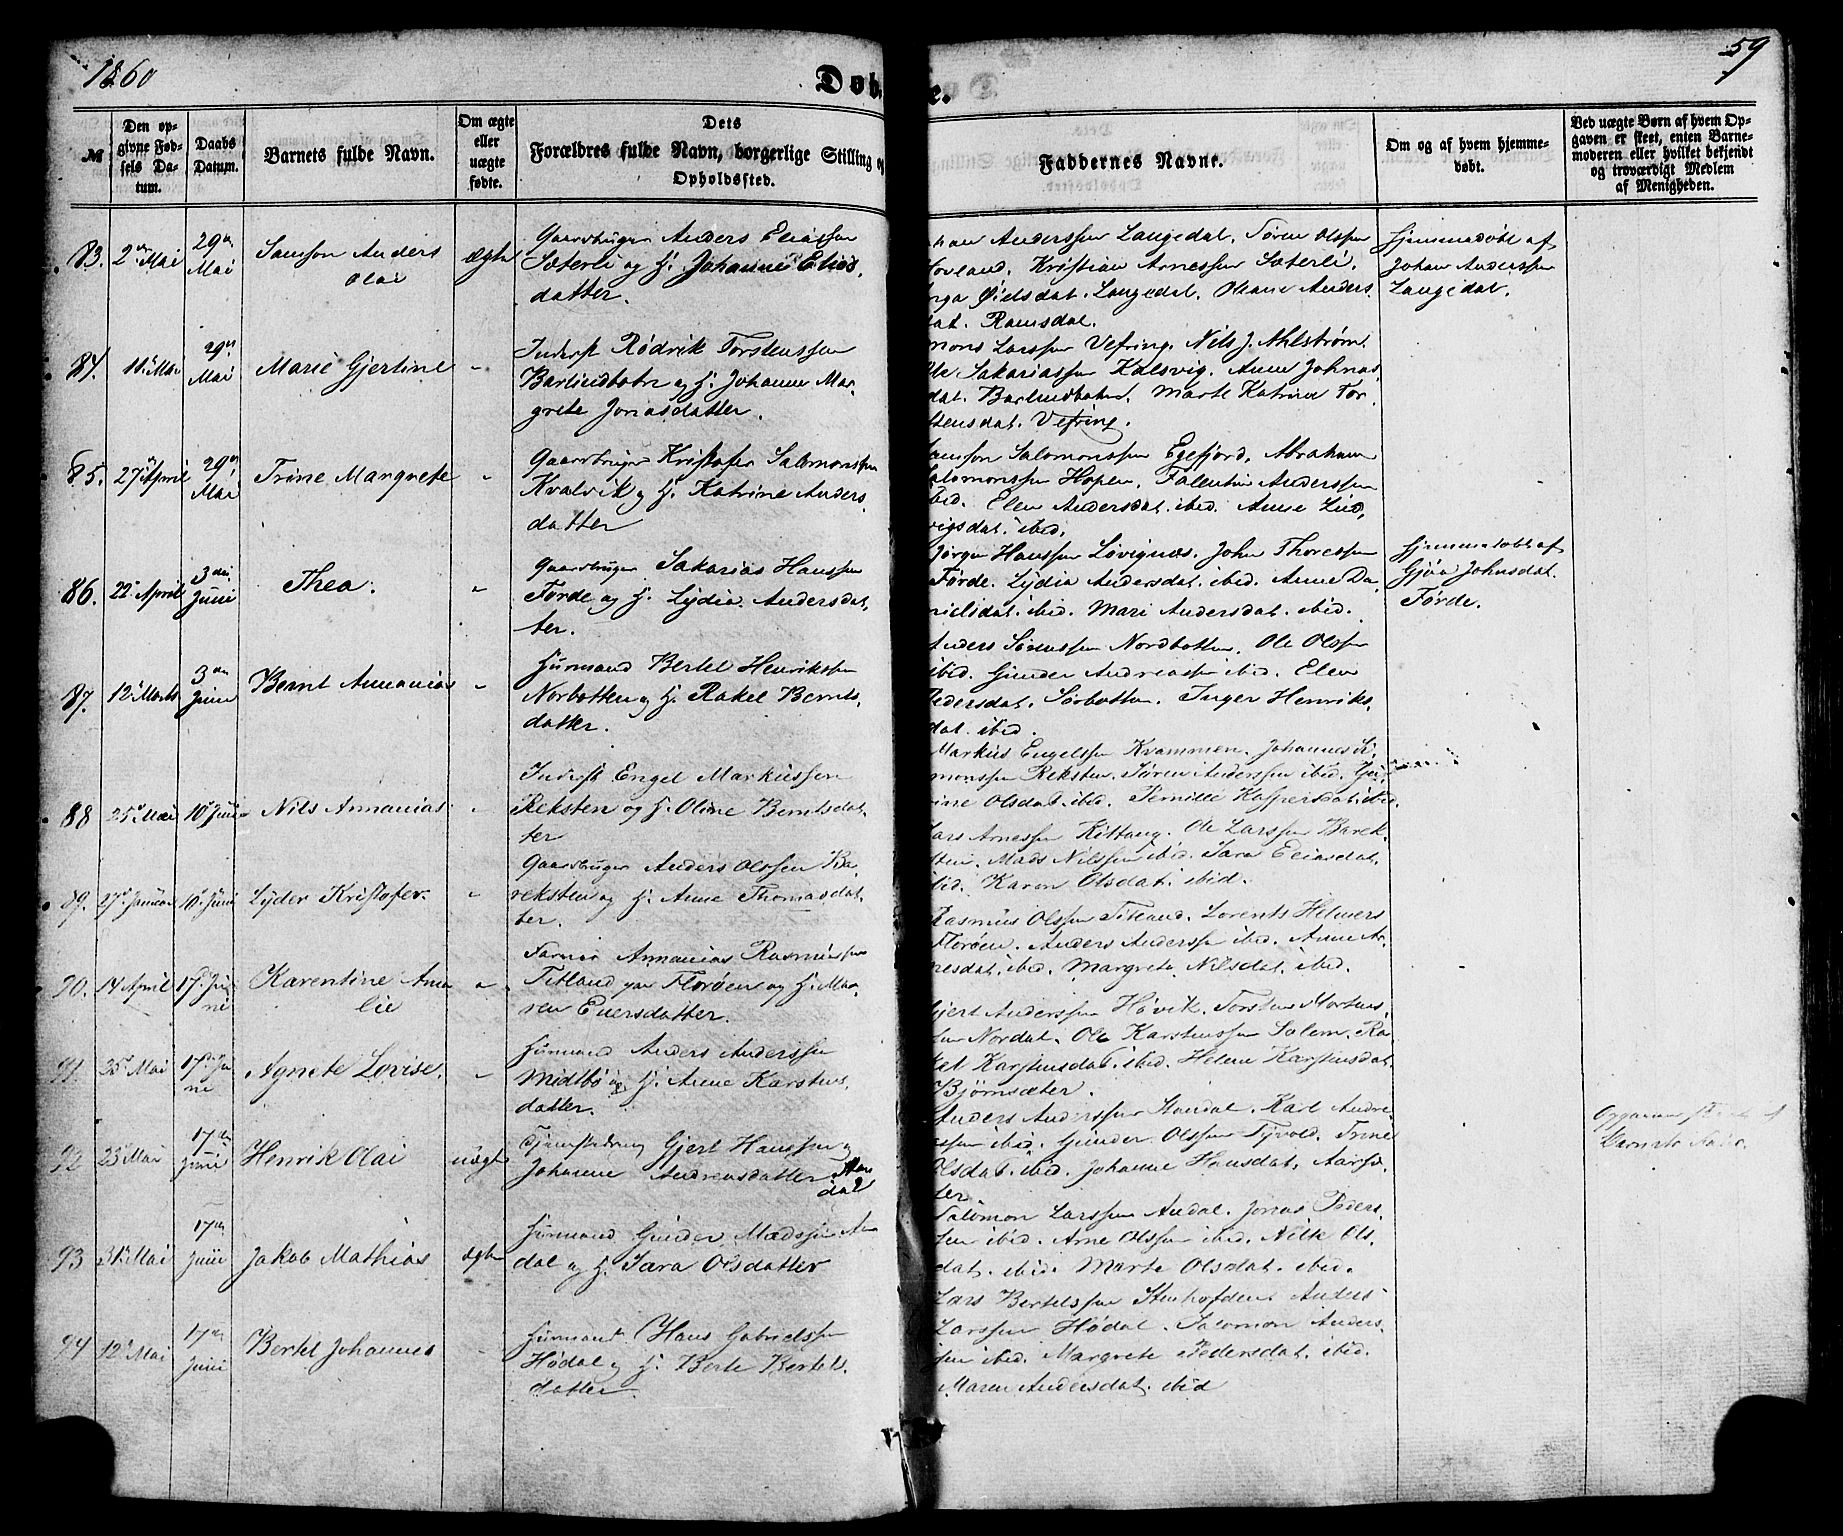 1860
59
Døb
e.
№
Den op-
givne Fød-
sels Da-
tum.
Daabs
Datum.
Barnets fulde Navn.
Om ægte
eller
uægte
fødte.
Dets
Forældres fulde Navn, borgerlige Stilling og
Opholdssted.
Faddernes Navne.
Om og af hvem hjemme-
døbt.
Ved uægte Børn af hvem Op-
gaven er skeet, enten Barne-
moderen eller hvilket bekjendt
og troværdigt Medlem
af Menigheden.
83. 2 Mai 29 Mai Samson Anders Olai ægte
Gaardbruger Anders Eliassen
Sæterli og H. Johanne Elias
datter.
Anderssen Langedal. Søren Olssen
Hovland. Kristian Arnessen Sæterli.
Langedal. Oleane Anders
dat. Ramsdal.
Hjemmedøbt af
Johan Anderssen
Langedal.
84. 11 Mai 29 Mai Marie Gjertine "
Inderst Rødrik Torstenssen
Barlindbotn og H. Johanne Mar
grete Jonasdatter.
mons Larssen Vefring. Nils J. Ahlstrøm.
Ole Sakariassen Kalsvig. Anne Johnas
dat. Barlindbotn. Marte Katrine Tor
stensdat. Vefring.
85. 27 April 29 Mai Trine Margrete "
Gaardbruger Kristofer Salomonssen
Kvalvik og H. Katrine Anders
datter
Samson Salomonssen Egefjord. Abraham
Salomonssen Hopen. Falentin Anderssen
ibid. Elen Andersdat. ibid. Anne Lud
vigsdat. ibid.
86. 22 April 3 Juni Thea. "
Gaardbruger Sakarias Hanssen
Førde og H. Lydia Andersdat
ter.
Jørgen Hanssen Løvignæs. John Thoressen
Førde. Lydia Andersdat. ibid. Anne Da
nielsdat. ibid. Mari Andersdat. ibid.
Hjemmedøbt af
Gjøa Johnsdat.
Førde.
87. 12 Marts 3 Juni Bernt Annanias "
Husmand Bertel Henrikssen
Norbotten og H. Rakel Bernts
datter.
Anders Nordbotten. Ole Olssen
ibid. Gunder Andreassen ibid. Elen
Pedersdat. Sørbotten. Inger Henriks
dat. ibid.
88 25 Mai 10 Juni Nils Annanias "
Inderst Engel Markussen
Reksten og H. Oline Berntsdat
ter
Markus Engelssen Kvammen. Johannes Si
monssen Reksten. Søren Anderssen ibid.
rine Olsdat. ibid. Pernille Kaspersdat. ibid.
89. 27 Januar 10 Juni Lyder Kristofer. "
Gaardbruger Anders Olssen Ba
reksten og H. Anne Thomasdat
ter.
Lars Arnessen Kittang. Ole Larssen Barek
sten. Mads Nilssen ibid. Sara Eliasdat.
ibid. Karen Olsdat. ibid.
90. 14 April 17 Juni Karentine Amalie "
Annanias Rasmussen
Titland paa Florøen og H. Ma
ren Enersdatter.
Rasmus Olssen Titland. Lorents Helmers
Florøen. Anders Anderssen ibid. Anne Ar
nesdat. ibid. Margrete Nilsdat. ibid.
91 25 Mai 17 Juni Agnete Lovise. "
Husmand Anders Anderssen
Midtbø og H. Anne Karstens
datter.
Gjert Anderssen Høvik. Torsten Mortens
sen Nordal. Ole Karstenssen Solem. Ra
kel Karstensdat. ibid. Helene Karstensdat.
Bjørnsæter.
92 23 Mai 17 Juni Henrik Olai uægte
Gjert Hanssen og
Johanne Andreasdatter
Anders Anderssen Standal. Karl Andre
assen ibid. Gunder Olssen Tyvold. Trine
Olsdat. ibid. Johanne Hansdat. Aarsæ
ter
93 31 Mai 17 Juni Jakob Mathias ægte
Husmand Gunder Madssen An
dal og H. Sara Olsdatter
Salomon Larssen Andal. Jonas Peders
sen ibid. Arne Olssen ibid. Nille Ols
dat. ibid. Marte Olsdat. ibid.
94 12 Mai 17 Juni Bertel Johannes
Husmand Hans Gabrielssen
Hødal og H. Berte Bertels
datter.
Lars Bertelssen Stenhofden. Anders
Larssen Hødal. Salomon Anders
sen ibid. Margrete Pedersdat. ibid.
Maren Andersdat. ibid